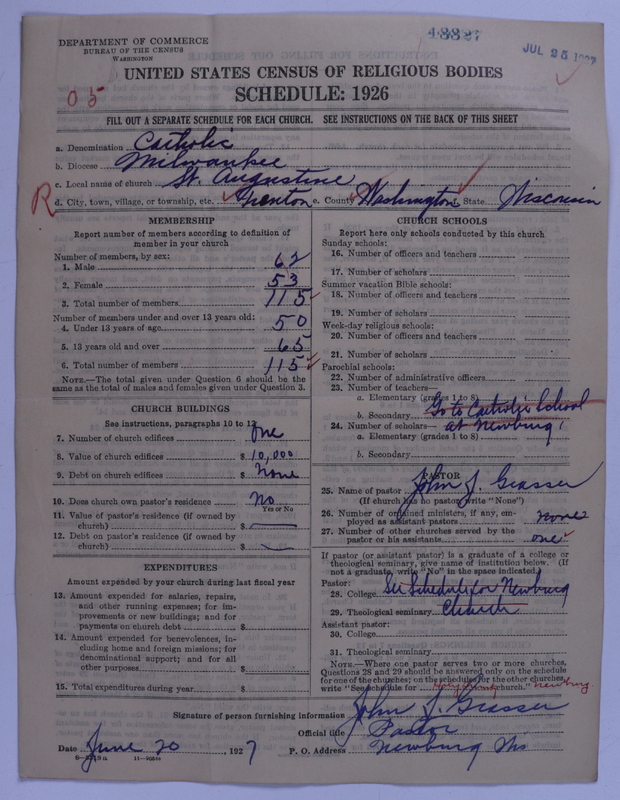 48827
JUL 25 1927
DEPARTMENT OF COMMERCE
BUREAU OF THE CENSUS
WASHINGTON
UNITED STATES CENSUS OF RELIGIOUS BODIES
SCHEDULE: 1926
05
FILL OUT A SEPARATE SCHEDULE FOR EACH CHURCH. SEE INSTRUCTIONS ON THE BACK OF THIS SHEET
a. Denomination Catholic
b. Diocese Milwaukee
c. Local name of church St. Augustine
R d. City, town, village, or township, etc. Trenton e. County Washington State Wisconsin
MEMBERSHIP
Report number of members according to definition of
member in your church
Number of members, by sex:
1. Male 62
2. Female 53
3. Total number of members 115
Number of members under and over 13 years old:
4. Under 13 years of age 50
5. 13 years old and over 65
6. Total number of members 115
NOTE.—The total given under Question 6 should be the
same as the total of males and females given under Question 3.
CHURCH BUILDINGS
See instructions, paragraphs 10 to 12
7. Number of church edifices One
8. Value of church edifices $ 10,000
9. Debt on church edifices $ None
10. Does church own pastor's residence No
Yes or No
11. Value of pastor's residence (if owned by
church) $
12. Debt on pastor's residence (if owned by
church) $
EXPENDITURES
Amount expended by your church during last fiscal year
13. Amount expended for salaries, repairs,
and other running expenses; for im-
provements or new buildings; and for
payments on church debt $
14. Amount expended for benevolences, in-
cluding home and foreign missions; for
denominational support; and for all
other purposes $
15. Total expenditures during year $
CHURCH SCHOOLS
Report here only schools conducted by this church
Sunday schools:
16. Number of officers and teachers
17. Number of scholars
Summer vacation Bible schools:
18. Number of officers and teachers
19. Number of scholars
Week-day religious schools:
20. Number of officers and teachers
21. Number of scholars
Parochial schools:
22. Number of administrative officers
23. Number of teachers—
a. Elementary (grades 1 to 8)
b. Secondary Go to Catholic School
24. Number of scholars— at Newburg
a. Elementary (grades 1 to 8)
b. Secondary
PASTOR
25. Name of pastor John J. Grasser
(If church has no pastor, write "None")
26. Number of ordained ministers, if any, em-
ployed as assistant pastors none
27. Number of other churches served by the
pastor or his assistants one
If pastor (or assistant pastor) is a graduate of a college or
theological seminary, give name of institution below. (If
not a graduate, write "No" in the space indicated.)
Pastor:
28. College See Schedule for Newburg
29. Theological seminary Church
Assistant pastor:
30. College
31. Theological seminary
NOTE.—Where one pastor serves two or more churches,
Questions 28 and 29 should be answered only on the schedule
for one of the churches; on the schedules for the other churches,
write "See schedule for church." Newburg
Signature of person furnishing information John J. Grasser
Official title Pastor
Date June 20, 1927 P. O. Address Newburg Wis